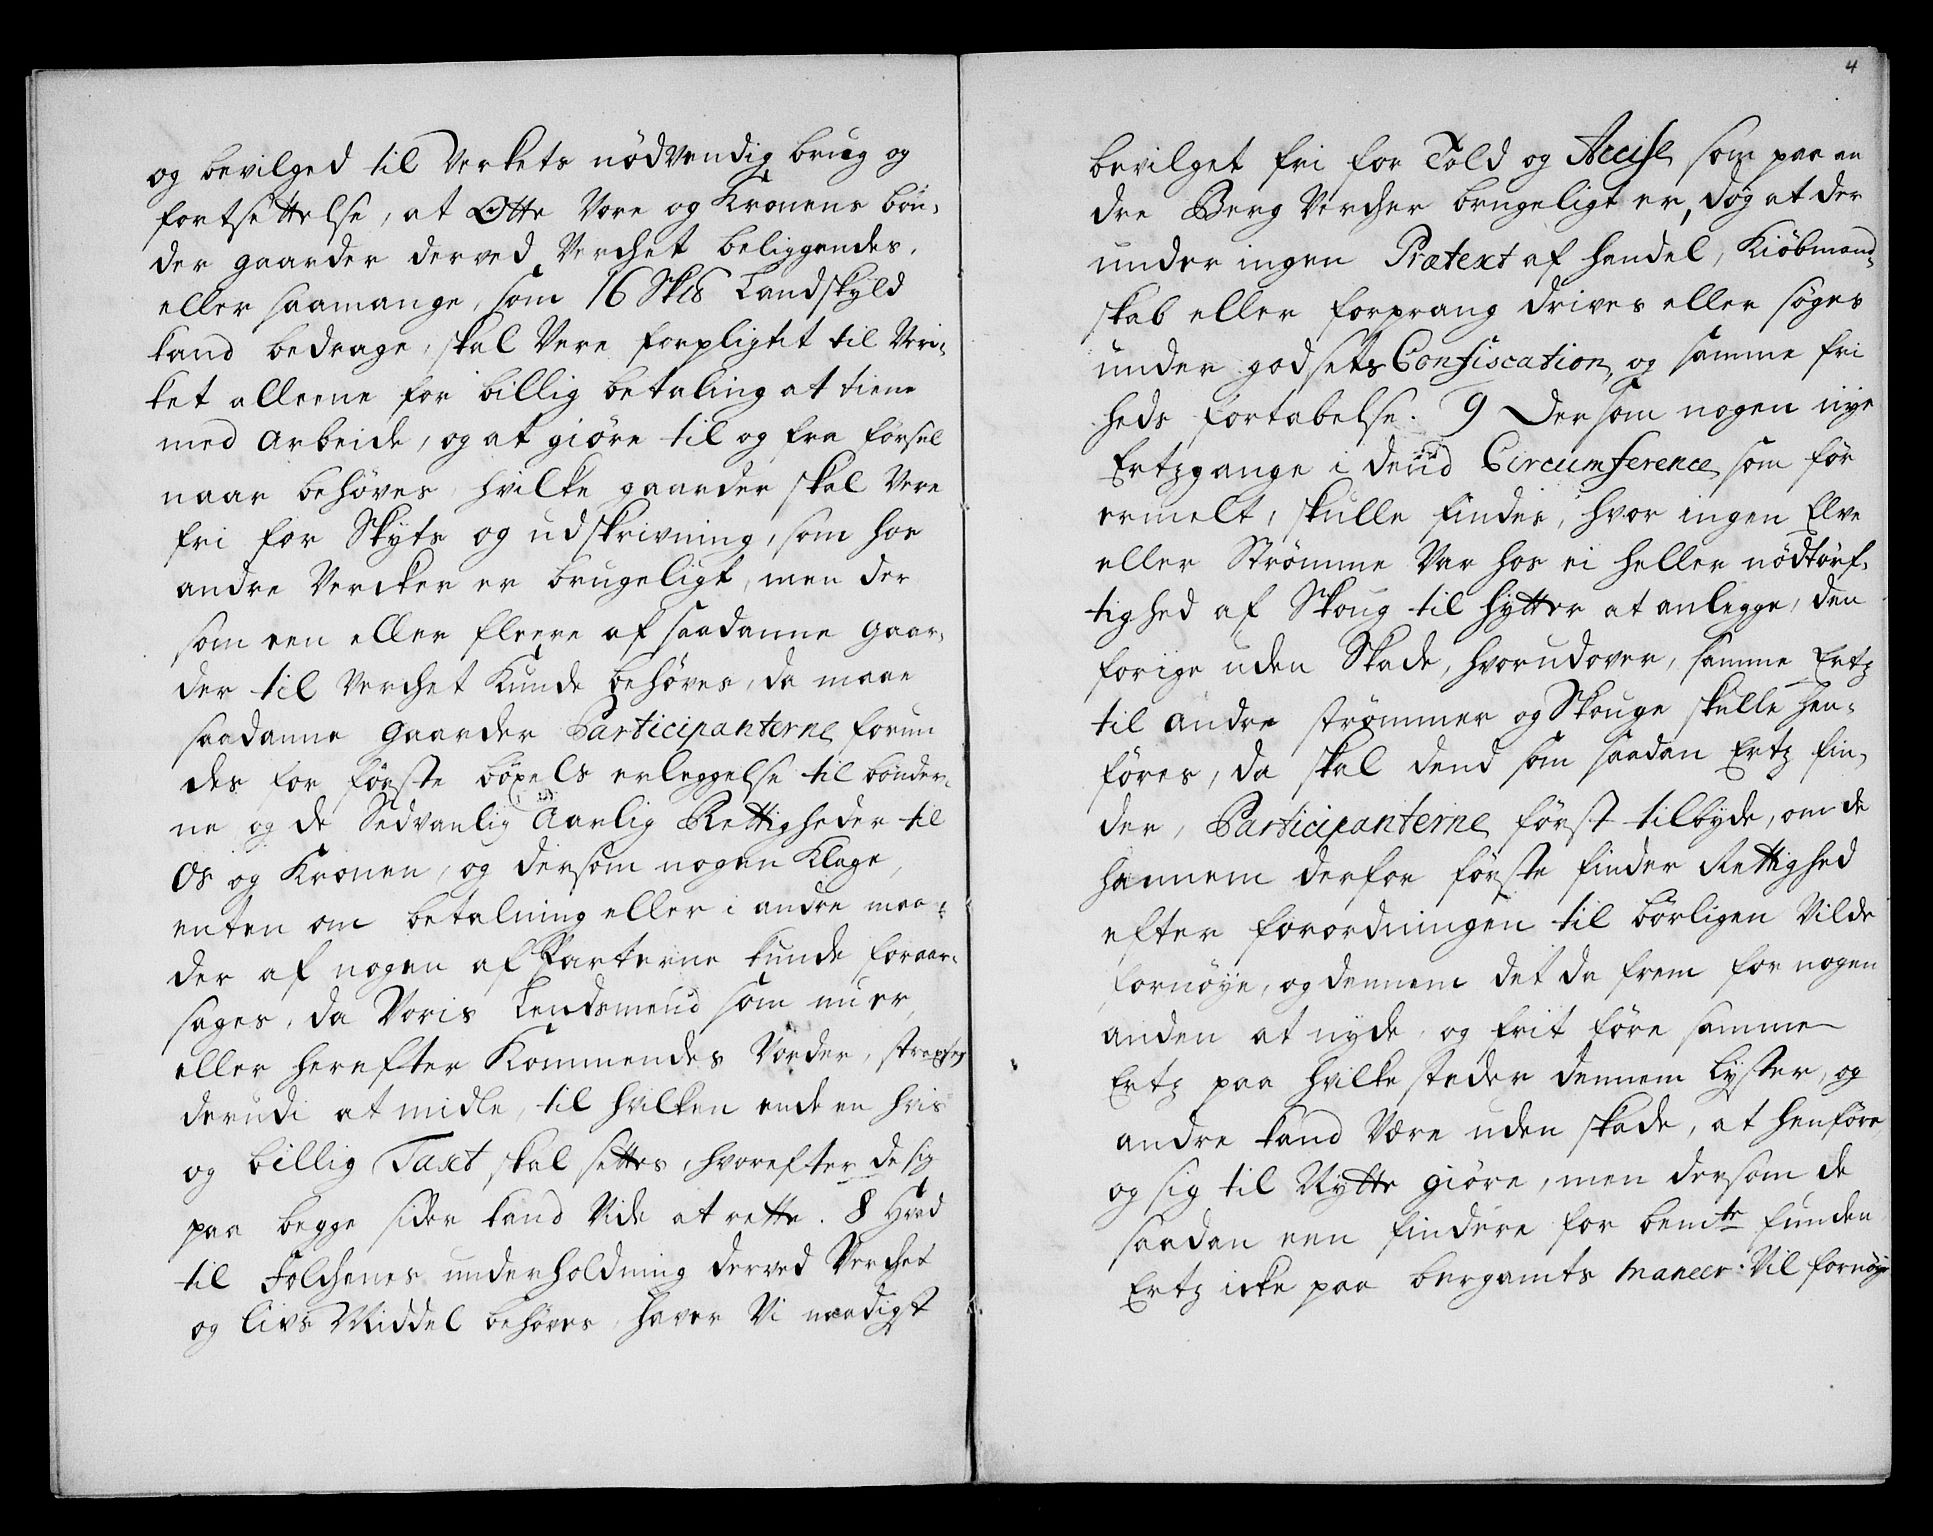 og bevilged til Verkets nödvendig brug og
fortsettelse, at Otte Vore og Kronens bön-
der gaarder derved Verchet beliggendes,
eller saamange, som 16 Sk℔ Landskyld
kand bedrage, skal Vere forpligtet til Ver-
ket alleene for billig betaling at tiene
med Arbeide, og at giöre til og fra försel
naar behöves, hvilke gaarder skal Vere
fri for Skyts og udskrivning, som hos
andre Vercker er brugeligt, men der
som een eller fleere af saadanne gaar-
der til Verchet Kunde behöves, da maae
saadanne Gaarder Participanterne forun
des for förste böxels erleggelse til bönder-
ne og de Sedvanlig Aarlig Rettigheder til
Os og Kronen, og dersom nogen Klage,
enten om betalning eller i andre maa-
der af nogen af Parterne kunde foraar-
sages, da Voris Lendsmend som nu er,
eller herefter Kommendes Vorder, straxs
derudi at midle, til hvilken ende en
og billig Taxt skal settes, hvorefter de sig
paa begge sider kand Vide at rette. 8 Hvad
til Folchenes underholdning derved Verchet
og livs Middel behöves, haver Vi naadigst
4
bevilget fri for Told og Accise som paa an
dre Berg Vercher brugeligt er, dog at der
under ingen Prætext af handel, Kiöbmand-
skab eller forprang drives eller söges
under godsets Confiscation, og samme fri
heds fortabelse. 9 Dersom nogen nye
Ertzgange i dend Circumference, som för
ermelt, skulle findes, hvor ingen Elve
eller Strömme Var hos ei heller nödtörf-
tighed af Skoug til hytter at anlegge, den
forige uden Skade, hvorudover, samme Ertz
til andre strömmer og Skouge skulle hen-
föres, da skal dend som saadan Ertz fin-
der, Participanterne först tilbyde, om de
hannem derfor förste finder Rettighed
efter forordningen til börligen Vilde
fornöye, og dennem det da frem for nogen
anden at nyde, og frit före samme
Ertz paa hvilke steder dennem lyster, og
andre kand Være uden skade, at henföre,
og sig til Nytte giöre, men dersom de
saadan een findere for bemte funden
Ertz icke paa bergamts maneer Vil fornöye